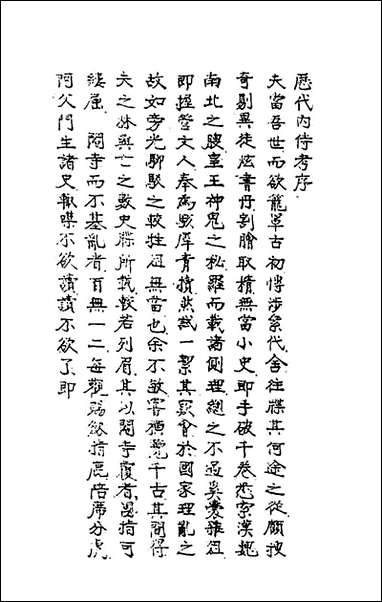 歷代內侍考序
夫當吾世而欲籠罩古初博涉絫代舍往牒其何途之從顧搜
奇剔異徒炫書丹割膾取積無當小史即手破千卷悉索漢魏
南北之腴皇王神鬼之秘羅而載諸側理總之不過奚囊雜俎
即握瑩文人奉為戰庫青積然哉一絜其窾會於國家理亂之
故如旁光聊駁之較牲俎無當也余不敏嘗橫覽千古其間得
失之林興亡之數史牒所載較若列眉其以閹寺覆者屈指可
縷屬閹寺而不基亂者百無一二每觀賜 指鹿陪席分虎
阿父門生諸史輒喋不欲讀讀不欲了即